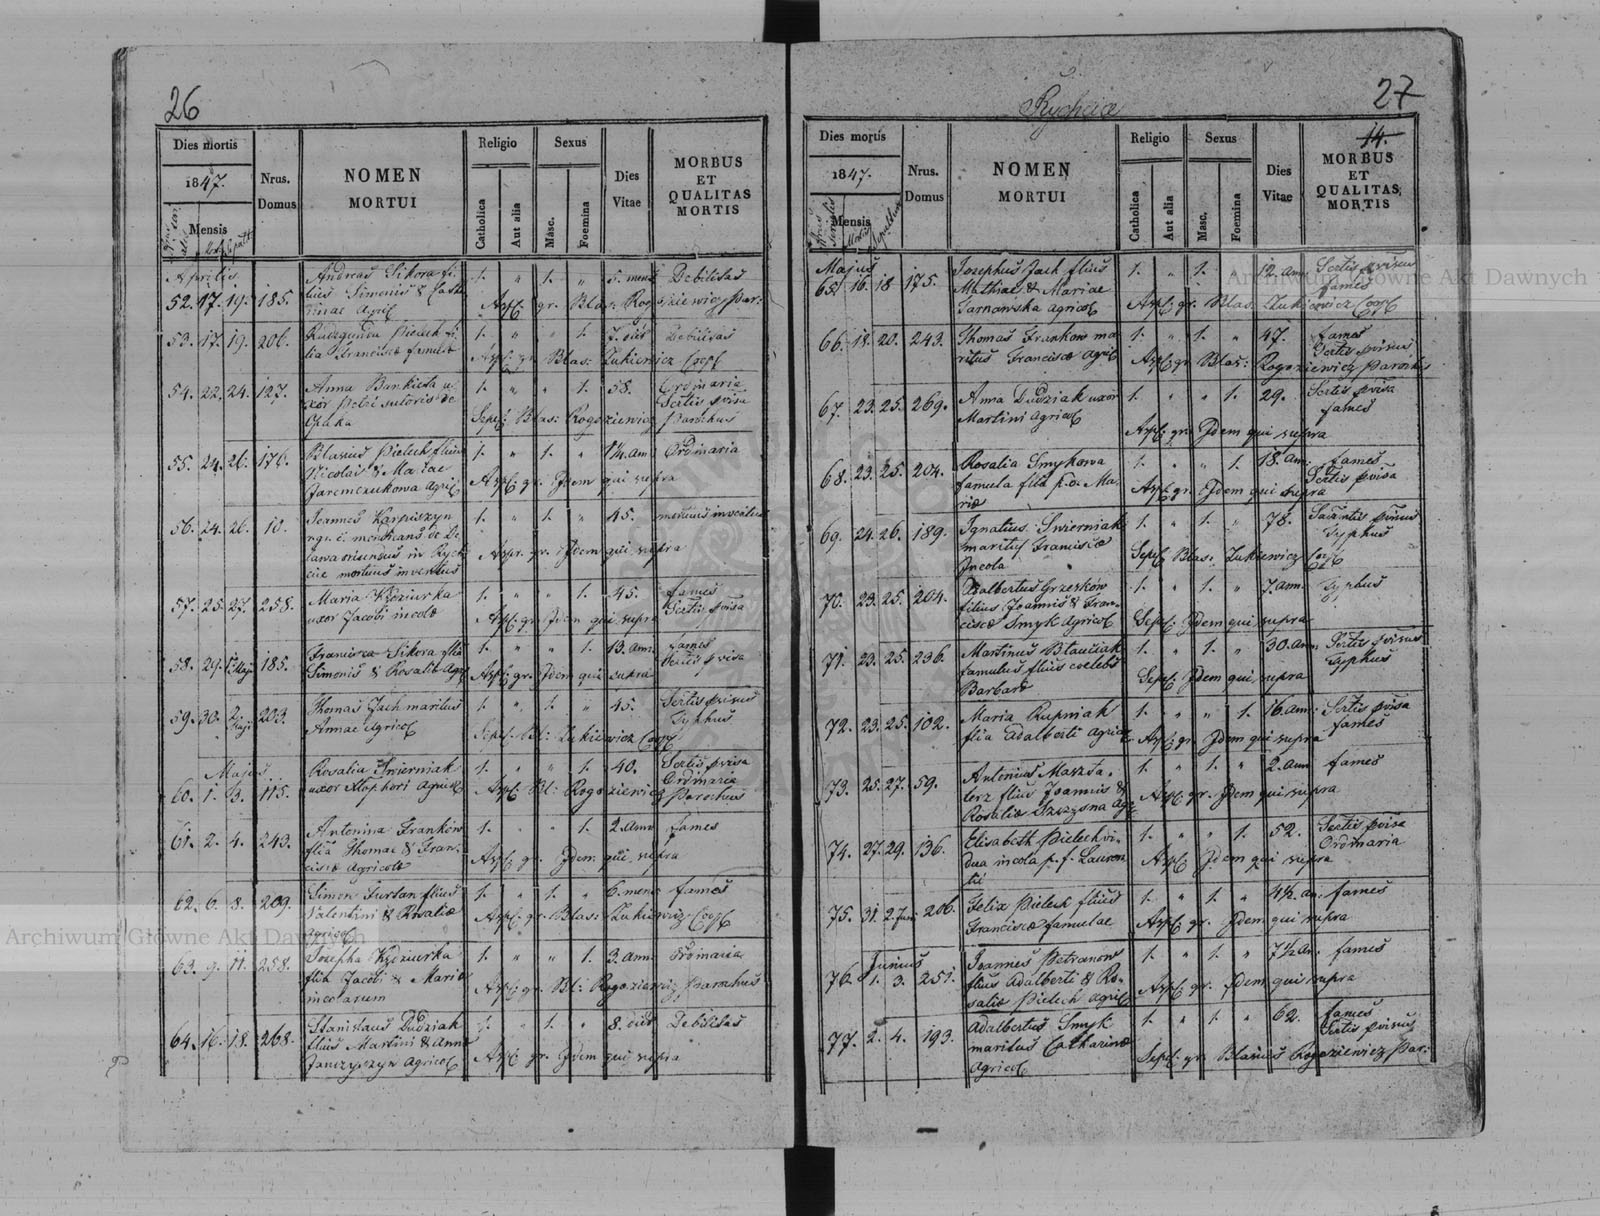 26
Dies mortis
1847.
Mensis
Nrus. Domus
NOMEN MORTUI
Religio
Catholica
Aut alia
Sexus
Masc.
Foemina
Dies Vitae
MORBUS ET QUALITAS MORTIS
Aprilis
52. 17. 19. 185. Andreas Sikora fi- 1. " 1. " 5. mens Debilitas
lius Simonis &
Asp: gr. Blas: Rogoziewicz Par:
53. 17. 19. 206. Pielech fi- 1. " " 1. 7. dies Debilitas
lia Franciscae famulae
Asp: gr. Blas: Zukiewicz Coop
54. 22. 24. 127. Anna Bankieta u- 1. " " 1. 58. Ordinaria
xor Petri sutoris de Sertis pvisa
Opaka Sepel: Blas: Rogoziewicz Parochus
55. 24. 26. 176. Blasius Pielech filius 1. " 1. " 14. ann Ordinaria
Nicolai & Mariae
Jaremczukowa Agric
Asp: gr. Idem qui supra
56. 24. 26. 10. Joannes Karpiszyn 1. " 1. " 45. mortuus inventus
mendicans de
in Rych
cie mortuus inventus
Asp: gr. Idem qui supra
57. 25. 27. 258. Maria Kędziurka 1. " " 1. 45. fames
uxor Jacobi incolae Sertis pvisa
Asp: gr. Idem qui supra
58. 29. 1. Maji 185. Francisca Sikora filia 1. " " 1. 13. ann. fames
Simonis & Rosaliae Agric Sertis pvisa
Asp: gr. Idem qui supra
59. 30. 2. Maji 203. Thomas Jach maritus 1. " 1. " 45. Sertis pvisus
Annae Agricol Typhus
Sepel: Bl: Zukiewicz Coop
Majus
60. 1. 3. 115. Rosalia Swierniak 1. " " 1. 40. Sertis pvisa
uxor Agricol Ordinaria
Asp: Bl: Rogoziewicz Parochus
61. 2. 4. 243. Antonina Franków 1. " " 1. 2. ann fames
filia Thomae & Fran-
ciscae Agricol
Asp: gr. Idem qui supra
62. 6. 8. 209. Simon Furtan filius 1. " 1. " 6. mens fames
Valentini & Rosaliae
Agricol
Asp: gr. Blas: Zukiewicz Coop
63. 9. 11. 258. Josepha Kędziurka 1. " " 1. 3. ann. Ordinaria
filia Jacobi & Mariae
incolarum
Asp: gr. Bl: Rogoziewicz Parochus
64. 16. 18. 268. Stanislaus Dudziak 1. " 1. " 8. dies Debilitas
filius Martini & Annae
Janczyszyn Agricol
Asp: gr. Idem qui supra
Rychcice
27
14.
Dies mortis
1847.
Mensis
Nrus. Domus
NOMEN MORTUI
Religio
Catholica
Aut alia
Sexus
Masc.
Foemina
Dies Vitae
MORBUS ET QUALITAS MORTIS
Majus
65. 16. 18. 175. Josephus Jach filius 1. " 1. " 12. ann Sertis pvisus
Mathiae & Mariae fames
Tarnawska Agricol
Asp: gr. Blas: Zukiewicz Coop
66. 18. 20. 243. Thomas Franków ma- 1. " 1. " 47. fames
ritus Franciscae Agric Sertis pvisus
Asp: gr. Blas: Rogoziewicz Parochus
67. 23. 25. 269. Anna Dudziak uxor 1. " " 1. 29. Sertis pvisa
Martini Agricol fames
Asp: gr. Idem qui supra
68. 23. 25. 204. Rosalia Smykowa 1. " " 1. 18. ann. fames
famula filia p. d. Ma- Sertis pvisa
riae
Asp: gr. Idem qui supra
69. 24. 26. 189. Ignatius Swierniak 1. " 1. " 78. pvisus
maritus Franciscae Typhus
Incola
Sepel: Blas: Zukiewicz Coop
70. 23. 25. 204. Adalbertus Grzesków 1. " 1. " 7. ann. Typhus
filius Joannis & Fran-
ciscae Smyk Agricol
Sepel: Idem qui supra
71. 23. 25. 236. Martinus Blauciak 1. " 1. " 30. ann. Sertis pvisus
famulus filius coelebs Typhus
Barbarae
Sepel: Idem qui supra
72. 23. 25. 102. Maria Rupniak 1. " " 1. 16. ann. Sertis pvisa
filia Adalberti Agricol fames
Asp: gr. Idem qui supra
73. 25. 27. 59. Antonius Maszta- 1. " 1. " 2. ann fames
lerz filius Joannis &
Rosaliae Agr
Asp: gr. Idem qui supra
74. 27. 29. 136. Elisabeth Pielech vi- 1. " " 1. 52. Sertis pvisa
dua incola p. f. Lauren- Ordinaria
tii
Asp: Idem qui supra
75. 31. 2. Juni 206. Felix Pielech filius 1. " 1. " 4½. an. fames
Franciscae famulae
Asp: gr. Idem qui supra
Junius
76. 1. 3. 251. Joannes Petranow 1. " 1. " 7½ an. fames
filius Adalberti & Ro-
saliae Pielech Agric
Asp: gr. Idem qui supra
77. 2. 4. 193. Adalbertus Smyk 1. " 1. " 62. fames
maritus Catharinae Sertis pvisus
Agricol
Sepel: gr. Blasius Rogoziewicz Par:
Archiwum Główne Akt Dawnych
Archiwum Główne Akt Dawnych